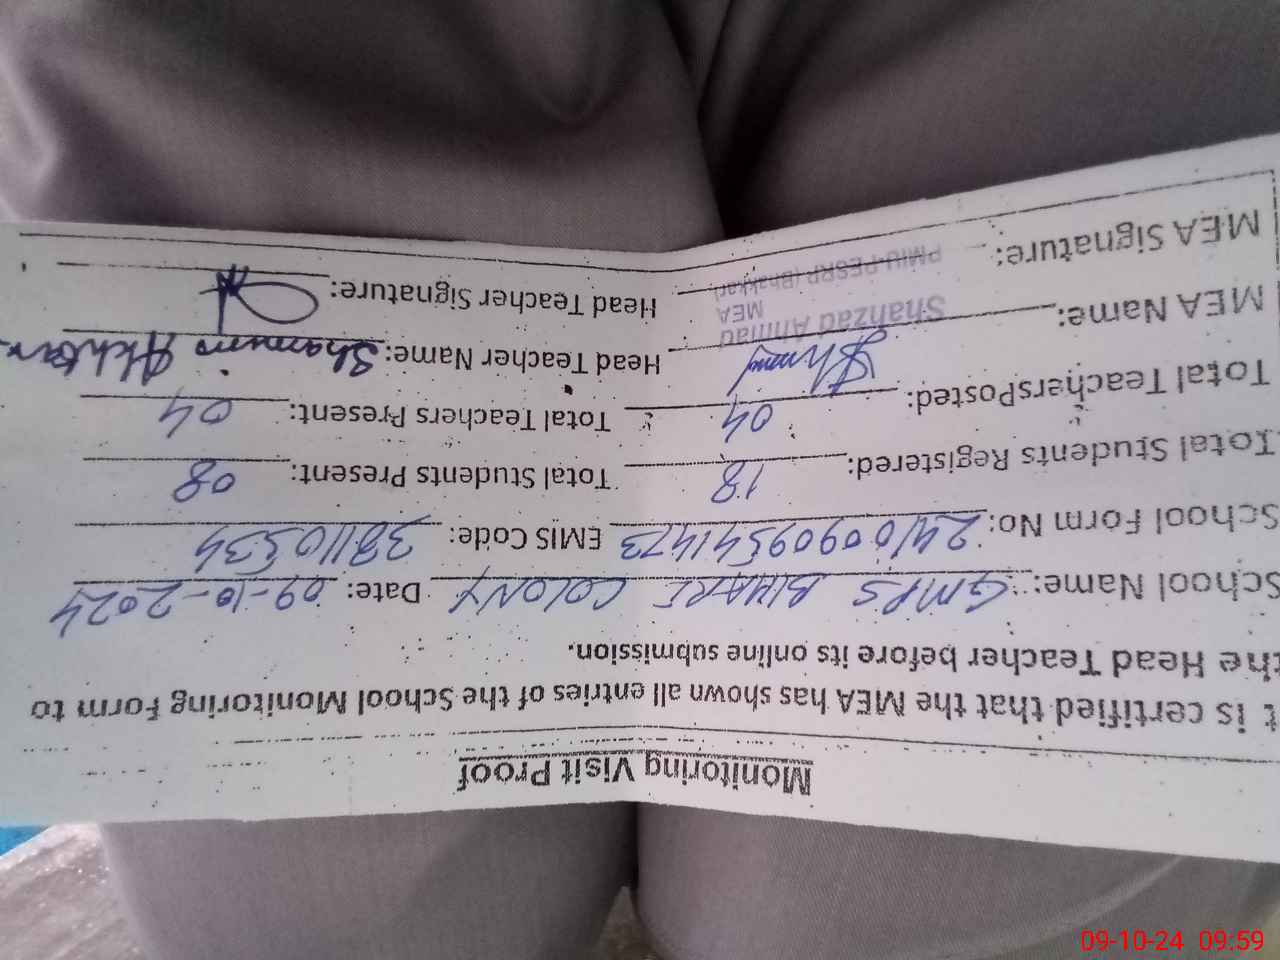 Monitoring Visit Proof
t is certified that the MEA has shown all entries of the School Monitoring Form to
the Head Teacher before its online submission.
School Name: GMPS BHARE COLONY Date: 09-10-2024
School Form No: 2410090954147 3 EMIS Code: 38110534
Total Students Registered: 18 Total Students Present: 08
Total TeachersPosted: 04 Total Teachers Present: 04
MEA Name: Head Teacher Name: Shamim Akhtar
Shahzad Ahmad
MEA
PMIU-PESRP (Bhakkar)
MEA Signature: Head Teacher Signature:
09-10-24 09:59